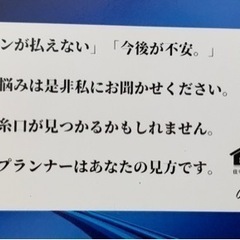 ンが払えない」「今後が不安。」
悩みは是非私にお聞かせください。
糸口が見つかるかもしれません。
プランナーはあなたの見方です。